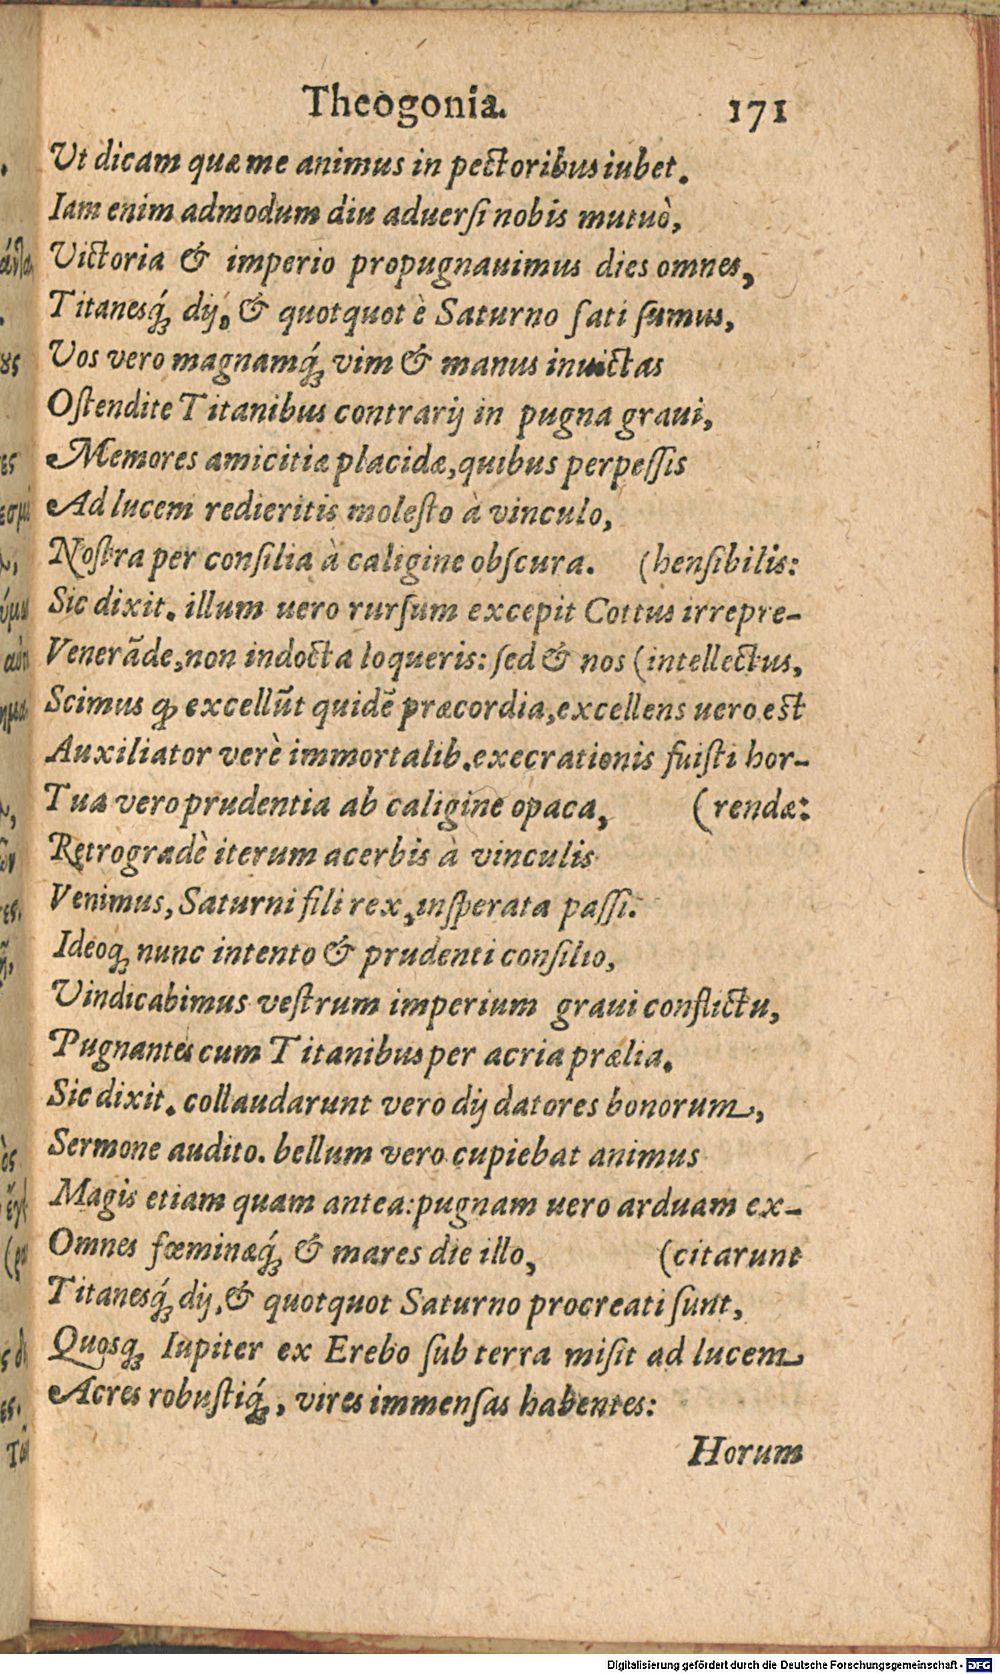 Theogonia. 171
Ut dicam quæ me animus in pectoribus iubet.
Iam enim admodum diu aduerſi nobis mutuò,
Victoria & imperio propugnauimus dies omnes,
Titanesq́; dij, & quotquot è Saturno ſati ſumus,
Vos vero magnamq́; vim & manus inuictas
Oſtendite Titanibus contrarij in pugna graui,
Memores amicitiæ placidæ, quibus perpeſſis
Ad lucem redieritis moleſto à vinculo,
Noſtra per conſilia à caligine obſcura. (henſibilis:
Sic dixit. illum uero rurſum excepit Cottus irrepre-
Venerãde, non indocta loqueris: ſed & nos (intellectus,
Scimus ꝙ excellũt quidẽ præcordia, excellens uero est
Auxiliator verè immortalib. execrationis fuiſti hor-
Tua vero prudentia ab caligine opaca, (rendæ:
Retrogradè iterum acerbis à vinculis
Venimus, Saturni fili rex, inſperata paſſi.
Ideoq; nunc intento & prudenti conſilio,
Vindicabimus veſtrum imperium graui conflictu,
Pugnantes cum Titanibus per acria prælia.
Sic dixit. collaudarunt vero dij datores bonorum,
Sermone audito. bellum vero cupiebat animus
Magis etiam quam antea: pugnam uero arduam ex-
Omnes fœminæq́; & mares die illo, (citarunt
Titanesq́; dij, & quotquot Saturno procreati ſunt,
Quosq; Iupiter ex Erebo ſub terra miſit ad lucem
Acres robuſtiq́;, vires immenſas habentes:
Horum
Digitalisierung gefördert durch die Deutsche Forschungsgemeinschaft - DFG